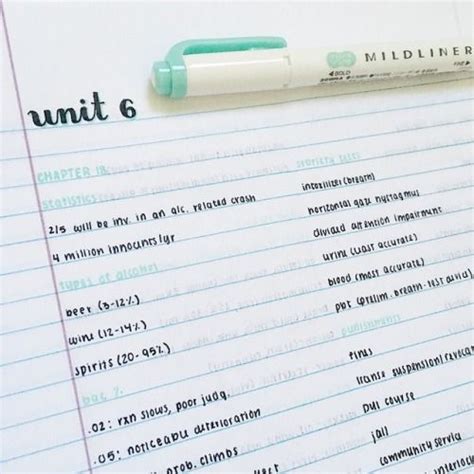 MILDLINER
BOLD
unit 6
CHAPTER 18:
statistics
2/5 will be inv. in an alc. related crash
4 million innocents/yr
types of alcohol
beer (3-12%)
wine (12-14%)
spirits (20-95%)
bac %
.02: rxn slows, poor judg.
.05: noticeable deterioration
prob. climbs
sobriety tests
intoxilizer (breath)
horizontal gaze nystagmus
divided attention impairment
urine (least accurate)
blood (most accurate)
PBT (prelim. breath test
punishments
fines
license suspension/revocat
DUI course
jail
community servic
interloc